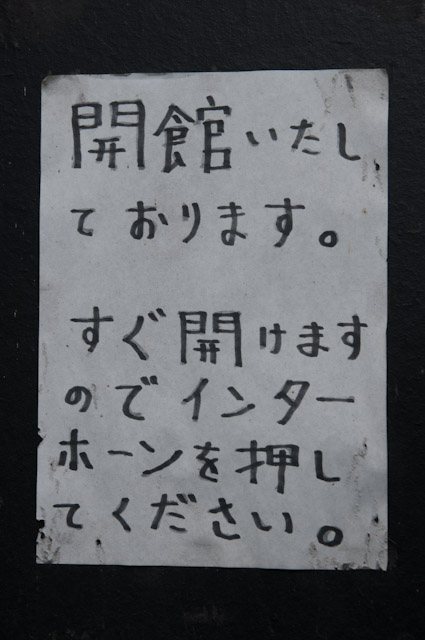 開館いたし
ております。
すぐ開けます
のでインター
ホーンを押し
てください。